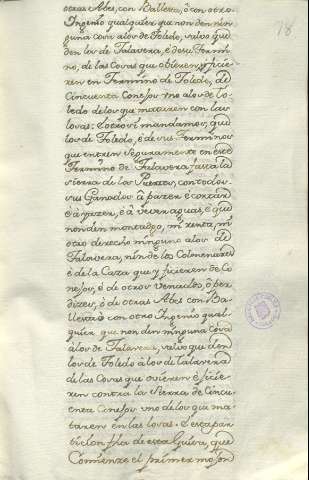 otras Abes, con Ballesta, ò con otro
Ingenio qualquier que non den nin-
guna cosa alos de Toledo, salvo que
den los de Talavera, è de su Termi-
no, de las Covas que obieren, y ficie-
ren en Termino de Toledo, de
Cincuenta Conejos uno alos de To-
ledo de los que mataren con las
losas. Otrosi mandamos, que
los de Toledo, è de sus Terminos
que entren seguramente en este
Termino de Talavera fasta la
sierra de los Puertos, con todos
sus Ganados à pazer è cortar
è à yazer, è à bever aguas, è que
non den montadgo, nin renta, nin
otro derecho ninguno alos de
Talavera, nin de los Colmenares
è de la Caza que y ficieren de Co-
nejos, ò de otros venados, ò per-
dizes, ò de otras Abes con Ba-
llesta ò con otro Ingenio qual-
quier que non den ninguna cosa
alos de Talavera, salvo que den
los de Toledo à los de Talavera
de las Covas que ovieren è ficie-
ren contra la Sierra de Cincu-
enta Conejos uno de los que ma-
taren en las losas. E esta par-
ticion fha de esta Guisa, que
Comienze el primer mojon